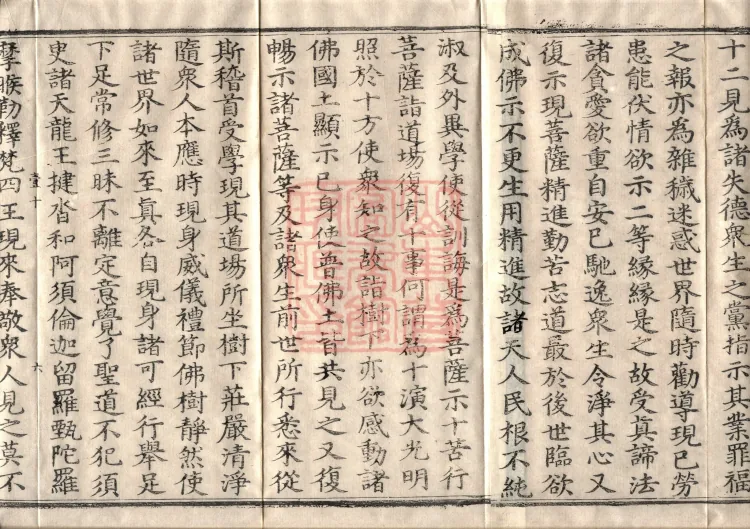 十二見為諸失德衆生之黨指示其業罪福
之報亦為雜穢迷惑世界隨時勸導現已勞
患能伏情欲示二等緣緣是之故受真諦法
諸貪愛欲重自安已馳逸衆生令淨其心又
復示現菩薩精進勤苦志道最於後世臨欲
成佛示不更生用精進故諸天人民根不純
淑及外異學使從訓誨是為菩薩示十苦行
菩薩詣道場復有十事何謂為十演大光明
照於十方使衆知之故詣樹下亦欲感動諸
佛國土顯示已身使普佛土皆共見之又復
暢示諸菩薩等及諸衆生前世所行悉來從
斯稽首受學現其道場所坐樹下莊嚴清淨
隨衆人本應時現身威儀禮節佛樹靜然使
諸世界如來至真各自現身諸可經行舉足
下足常修三昧不離定意覺了聖道不犯須
臾諸天龍王揵沓和阿須倫迦留羅甄陀羅
壹十 六
摩睺勒釋梵四王現來奉敬衆人見之莫不